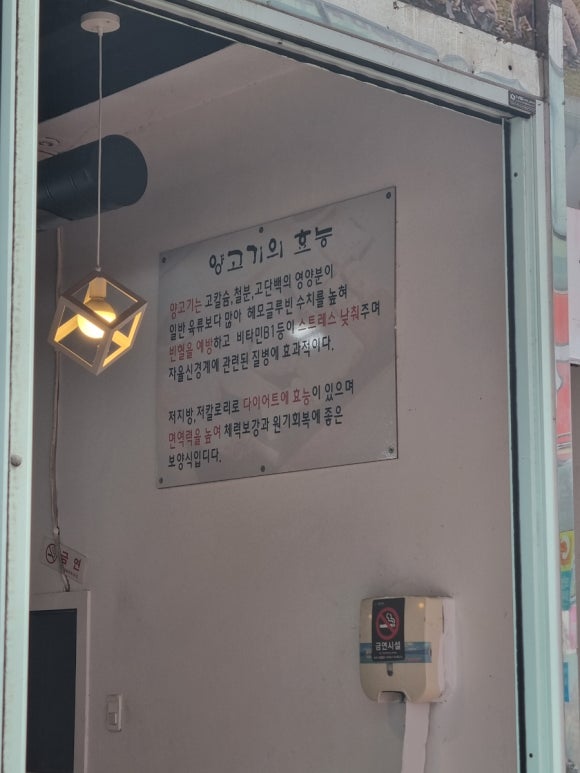 양고기의 효능
양고기는 고칼슘,철분,고단백의 영양분이
일반 육류보다 많아 헤모글루빈 수치를 높혀
빈혈을 예방하고 비타민B1등이 스트레스 낮춰주며
자율신경계에 관련된 질병에 효과적이다.
저지방,저칼로리로 다이어트에 효능이 있으며
면역력을 높여 체력보강과 원기회복에 좋은
보양식입니다.
금연
금연시설